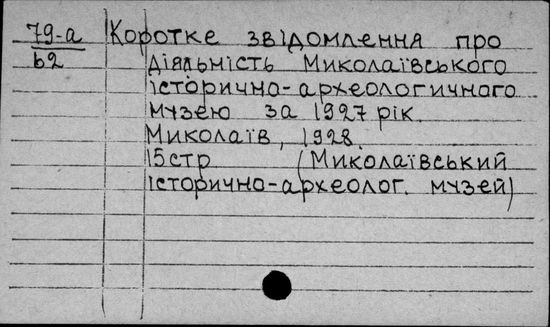 79-а Коротке звідомлення про
b2 діяльність Миколаївського
історично-археологичного
музею за 1927 рік.
Миколаїв, 1928.
15стр (Миколаївський
історично-археолог. музей)